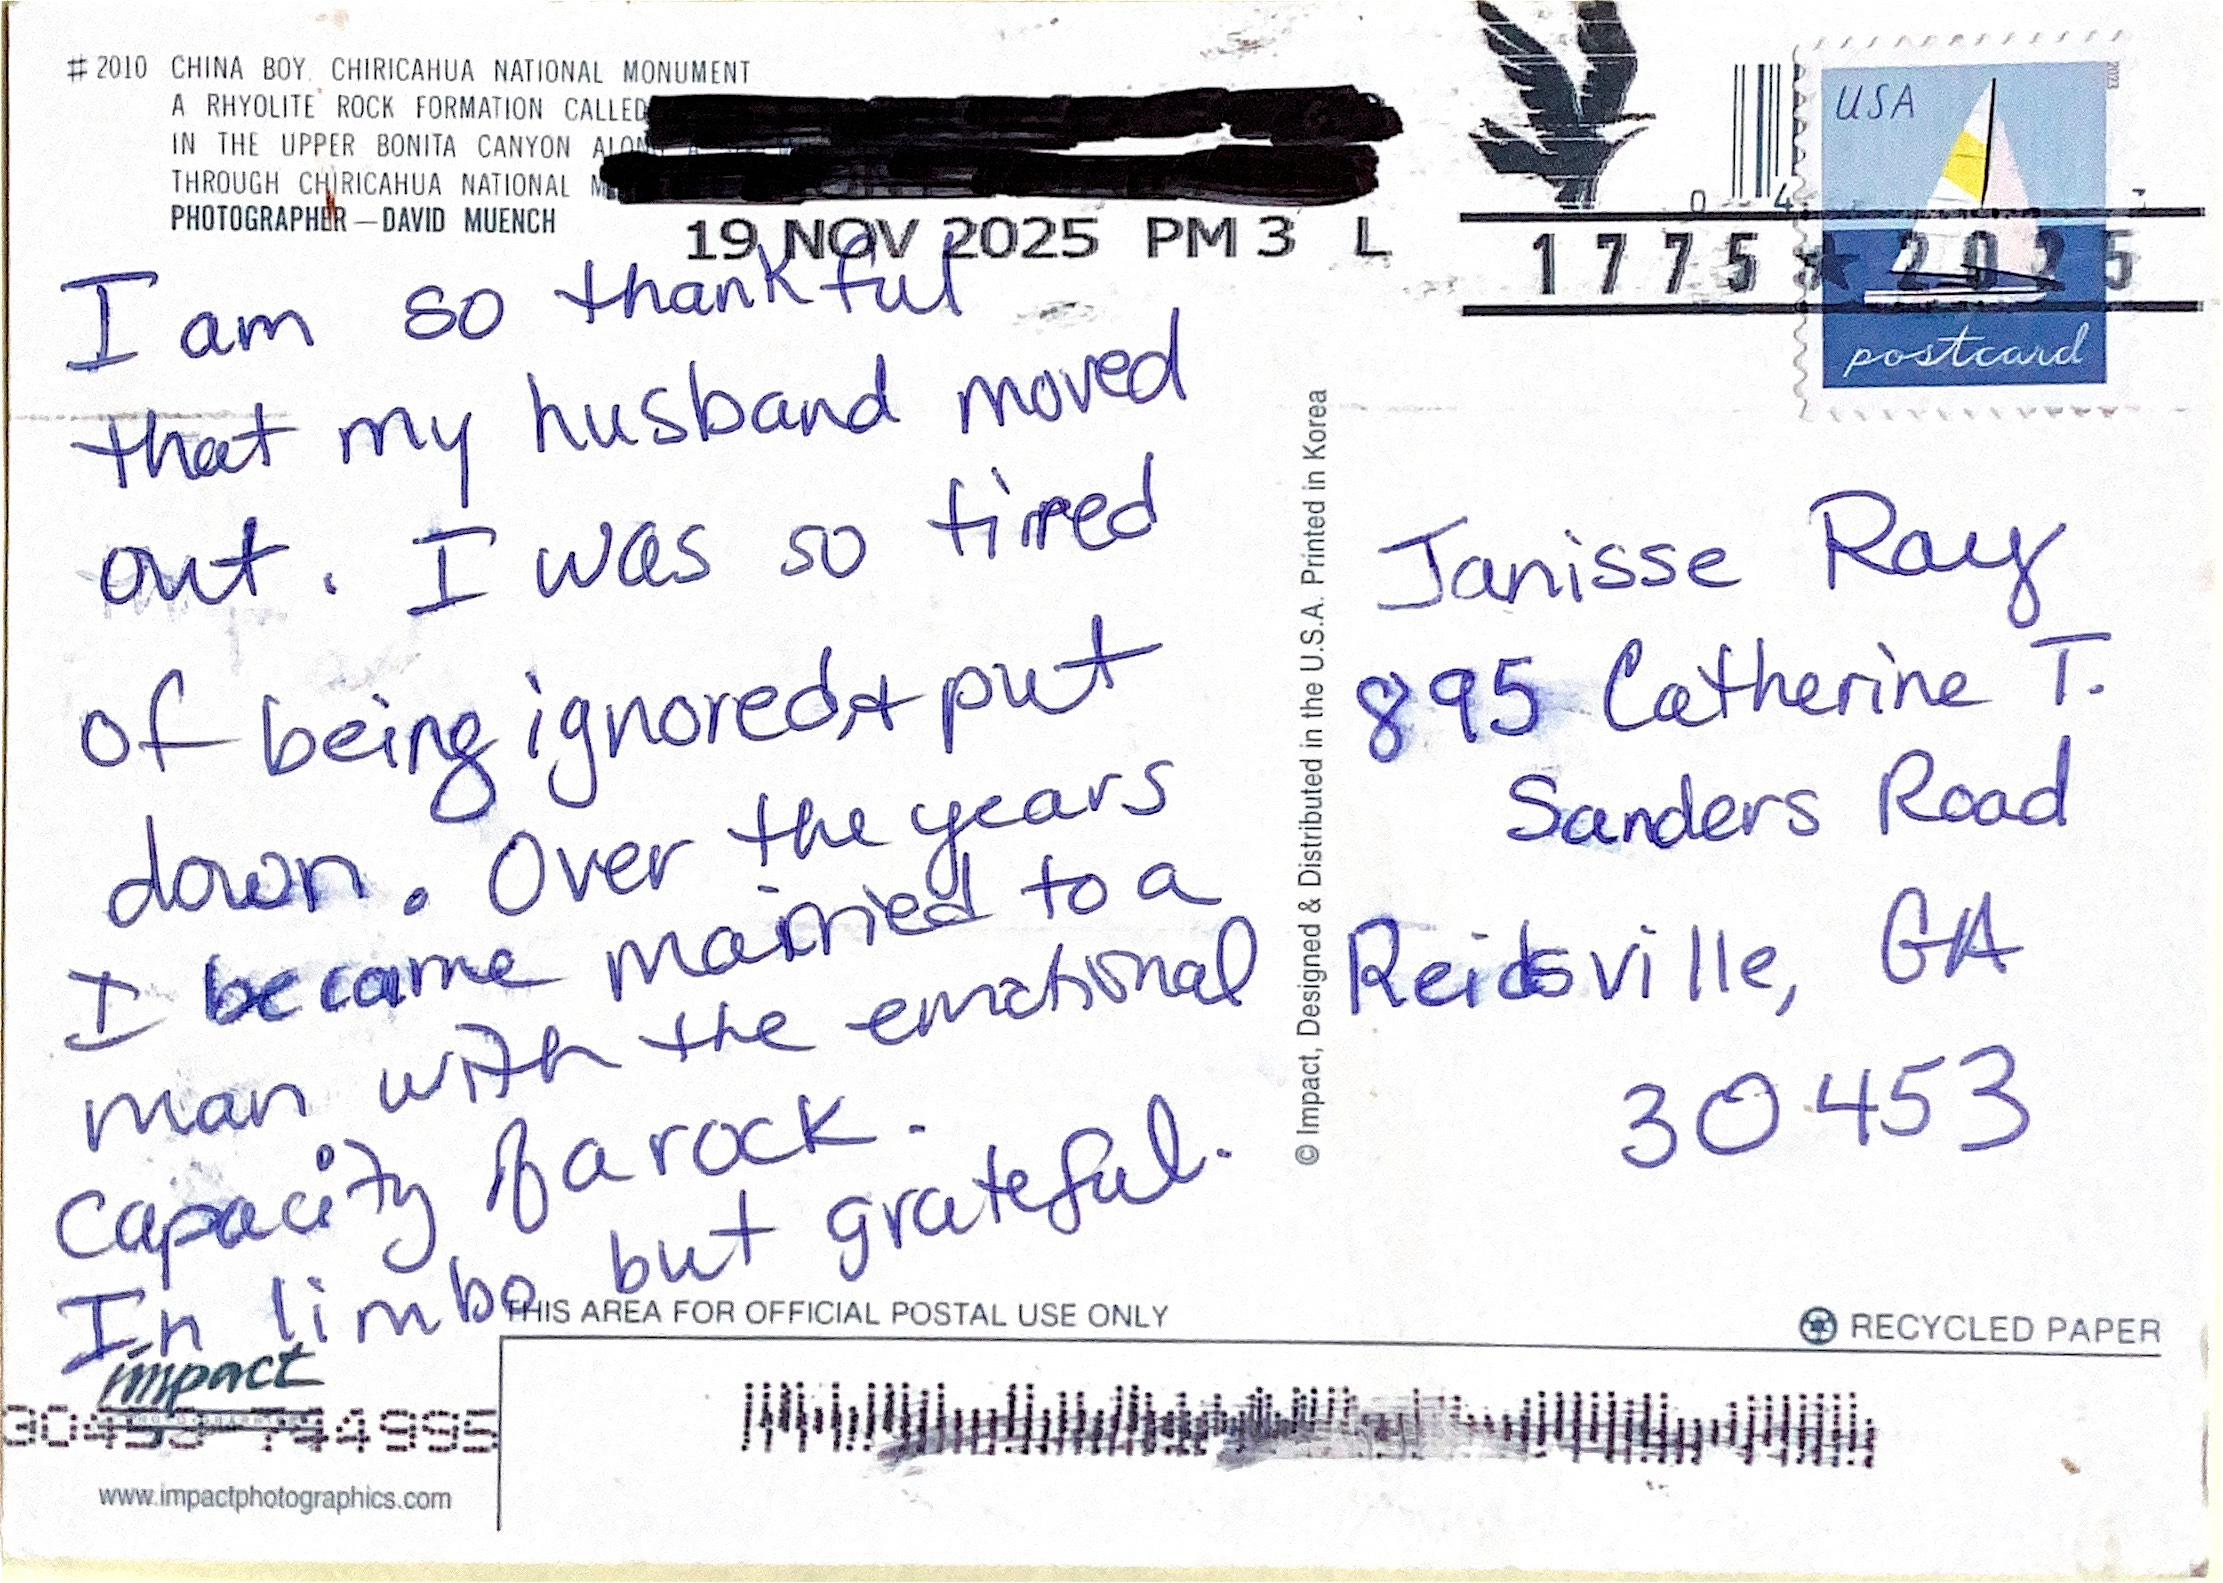 # 2010 CHINA BOY, CHIRICAHUA NATIONAL MONUMENT
A RHYOLITE ROCK FORMATION CALLED
IN THE UPPER BONITA CANYON ALONG A
THROUGH CHIRICAHUA NATIONAL
PHOTOGRAPHER — DAVID MUENCH
19 NOV 2025 PM 3 L
1775 ★ 2025
USA
2023
postcard
I am so thankful
that my husband moved
out. I was so tired
of being ignored & put
down. Over the years
I became married to a
man with the emotional
capacity of a rock.
In limbo but grateful.
© Impact, Designed & Distributed in the U.S.A. Printed in Korea
Janisse Ray
895 Catherine T.
Sanders Road
Reidsville, GA
30453
THIS AREA FOR OFFICIAL POSTAL USE ONLY
RECYCLED PAPER
impact
30453 744995
www.impactphotographics.com